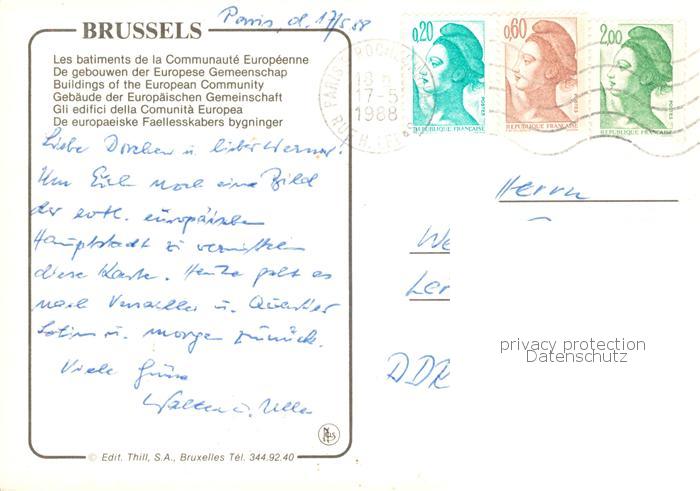 Paris, d. 17/5 88
BRUSSELS
Les batiments de la Communauté Européenne
De gebouwen der Europese Gemeenschap
Buildings of the European Community
Gebäude der Europäischen Gemeinschaft
Gli edifici della Comunità Europea
De europaeiske Faellesskabers bygninger
Liebe Dorchen u. lieber Werner!
Um Euch noch eine Bild
der evtl. europäischen
Hauptstadt zu vermitteln
diese Karte. Heute geht es
nach Versailles u. Quartier
Latin u. morgen zurück.
Viele Grüße
Walter u. Ulla
© Edit. Thill, S.A., Bruxelles Tél. 344.92.40
0,20
REPUBLIQUE FRANÇAISE
POSTES
0,60
REPUBLIQUE FRANÇAISE
POSTES
2,00
REPUBLIQUE FRANÇAISE
POSTES
PARIS
18 H
17-5
1988
Herrn
We
Ler
DDR
privacy protection
Datenschutz